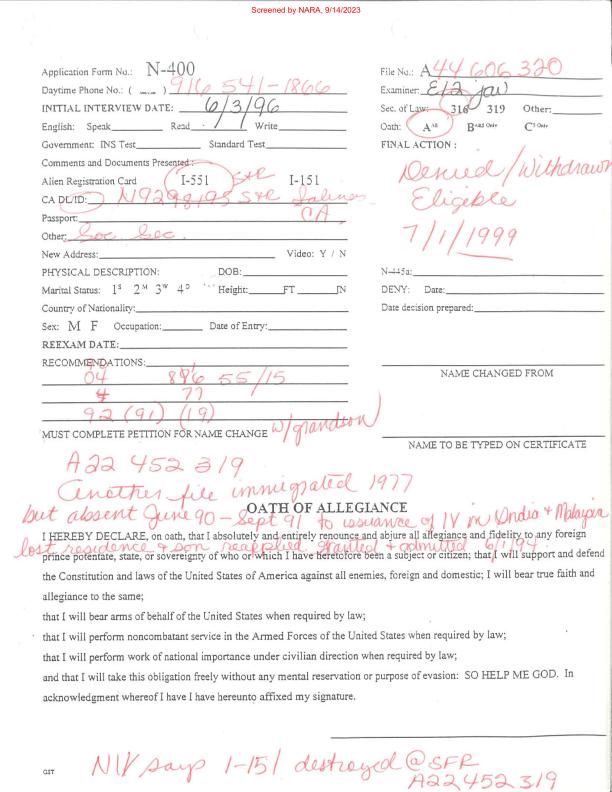 Screened by NARA, 9/14/2023
Application Form No.: N-400
Daytime Phone No.: ( ) 916 541-1866
INITIAL INTERVIEW DATE: 6/3/96
English: Speak Read Write
Government: INS Test Standard Test
Comments and Documents Presented:
Alien Registration Card I-551 I-151
CA DL/ID: N9298195 Salinas
Passport: CA
Other: Soc Sec.
New Address: Video: Y / N
PHYSICAL DESCRIPTION: DOB:
Marital Status: 1S 2M 3W 4D Height: FT IN
Country of Nationality:
Sex: M F Occupation: Date of Entry:
REEXAM DATE:
RECOMMENDATIONS:
04 55/15
4 77
92 (91) (19)
MUST COMPLETE PETITION FOR NAME CHANGE w/grandson
File No.: A 44 606 320
Examiner:
Sec. of Law: 316 319 Other:
Oath: A B C
FINAL ACTION :
Denied/Withdrawn
Eligible
7/1/1999
N-445a:
DENY: Date:
Date decision prepared:
NAME CHANGED FROM
NAME TO BE TYPED ON CERTIFICATE
A22 452 319
Another file immigrated 1977
but absent June 90 - Sept 91 to issuance of IV in India + Malaysia
lost residence & son reapplied granted + admitted 6/1/94
OATH OF ALLEGIANCE
I HEREBY DECLARE, on oath, that I absolutely and entirely renounce and abjure all allegiance and fidelity to any foreign
prince potentate, state, or sovereignty of who or which I have heretofore been a subject or citizen; that I will support and defend
the Constitution and laws of the United States of America against all enemies, foreign and domestic; I will bear true faith and
allegiance to the same;
that I will bear arms of behalf of the United States when required by law;
that I will perform noncombatant service in the Armed Forces of the United States when required by law;
that I will perform work of national importance under civilian direction when required by law;
and that I will take this obligation freely without any mental reservation or purpose of evasion: SO HELP ME GOD. In
acknowledgment whereof I have I have hereunto affixed my signature.
GST
NIV says I-151 destroyed @SFR
A22 452 319